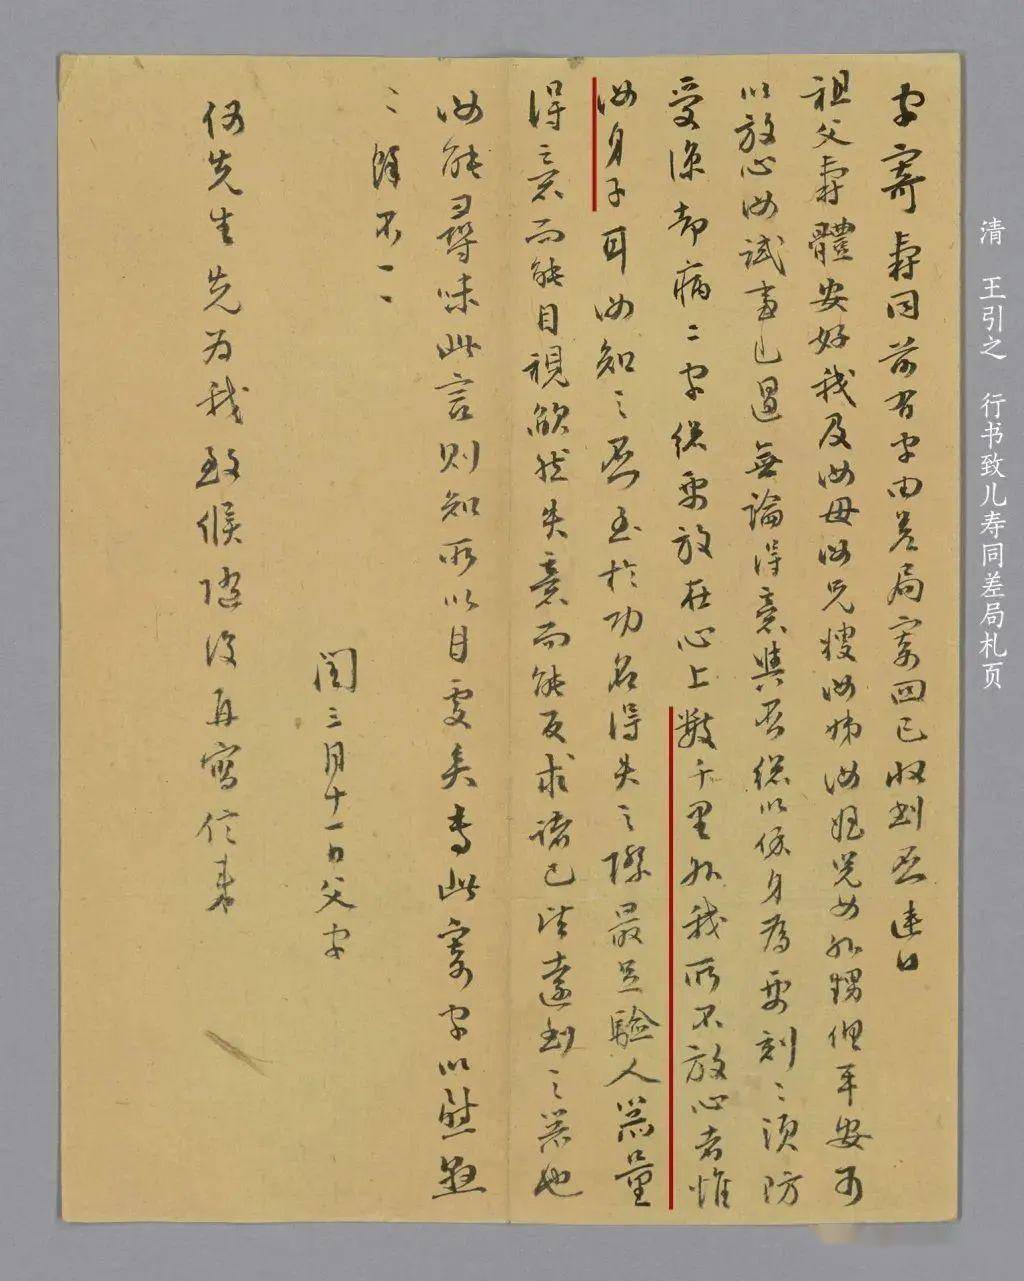 字寄壽同前有字由差局寄回已收到否連日
祖父壽體安好我及汝母汝兄嫂汝姊汝姪兒女外甥俱平安可
以放心汝試事已過無論得意與否總以保身為要刻刻須防
受涼却病二字總要放在心上數千里外我所不放心者惟
汝身子耳汝知之否至於功名得失之際最足驗人器量
得意而能自視欿然失意而能反求諸己皆遠到之器也
汝能尋味此言則知所以自處矣專此寄字以慰懸
懸餘不一一
閏三月十一日父字
何先生先为我致候随後再寫信來
清 王引之 行书致儿寿同差局札页